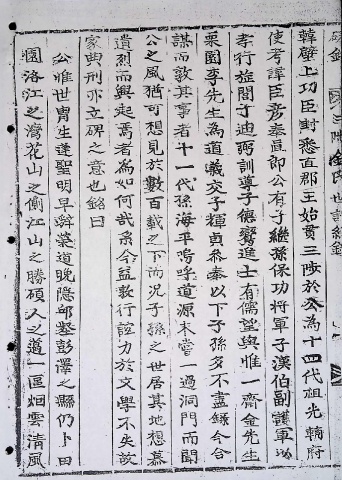 韓壁上功臣封悉直郡王始貫三陟於公為十四代祖光輔府
使考諱臣彦泰貟卽公有子繼孫保功將軍子漢伯副護軍以
孝行旌閭子迪弼訓導子德鸞進士有儒望與惟一齋金先生
栗園李先生為道義交子輝貞叅奉以下子孫多不盡錄今合
謀而敦其事者十一代孫海平嗚呼道源未嘗一過洞門而聞
公之風猶可想見於數百載之下而况子孫之世居其地想慕
遺烈而興起焉者為如何哉系今益敦行誼力於文學不失故
家典刑亦立碑之意也銘曰
公惟世胄生逢聖明早辭榮道晚隱邱壑彭澤之縣仍卜田
園洛江之灣花山之側江山之勝碩人之薖一區烟雲清風